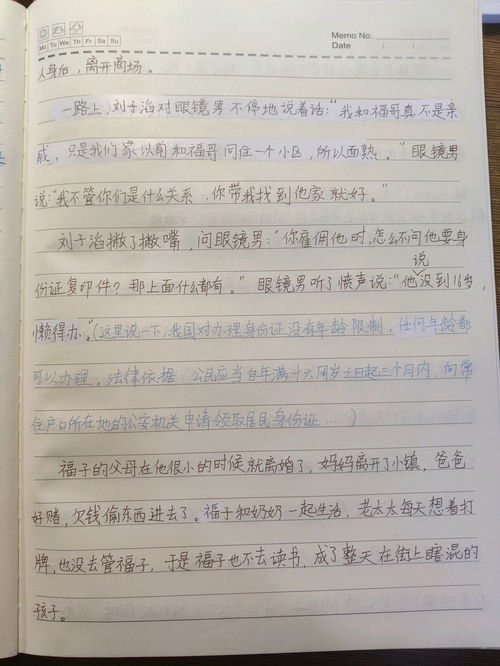 Memo No.
Mo Tu We Th Fr Sa Su
Date / /
人身后，离开商场。
一路上，刘子滔对眼镜男不停地说着话：“我和福哥真不是亲
戚，只是我们家以前和福哥同住一个小区，所以面熟。”眼镜男
说：“我不管你们是什么关系，你带我找到他家就好。”
刘子滔撇了撇嘴，问眼镜男：“你雇佣他时，怎么不问他要身
份证复印件？那上面什么都有。”眼镜男听了愤声说：“他说没到16岁，
懒得办。”（这里说一下，我国对办理身份证没有年龄限制，任何年龄都
可以办理。法律依据：公民应当自年满十六周岁之日起三个月内，向常
住户口所在地的公安机关申请领取居民身份证...）
福子的父母在他很小的时候就离婚了，妈妈离开了小镇，爸爸
好赌，欠钱偷东西进去了。福子和奶奶一起生活，老太太每天想着打
牌，也没去管福子，于是福子也不去读书，成了整天在街上瞎混的
孩子。